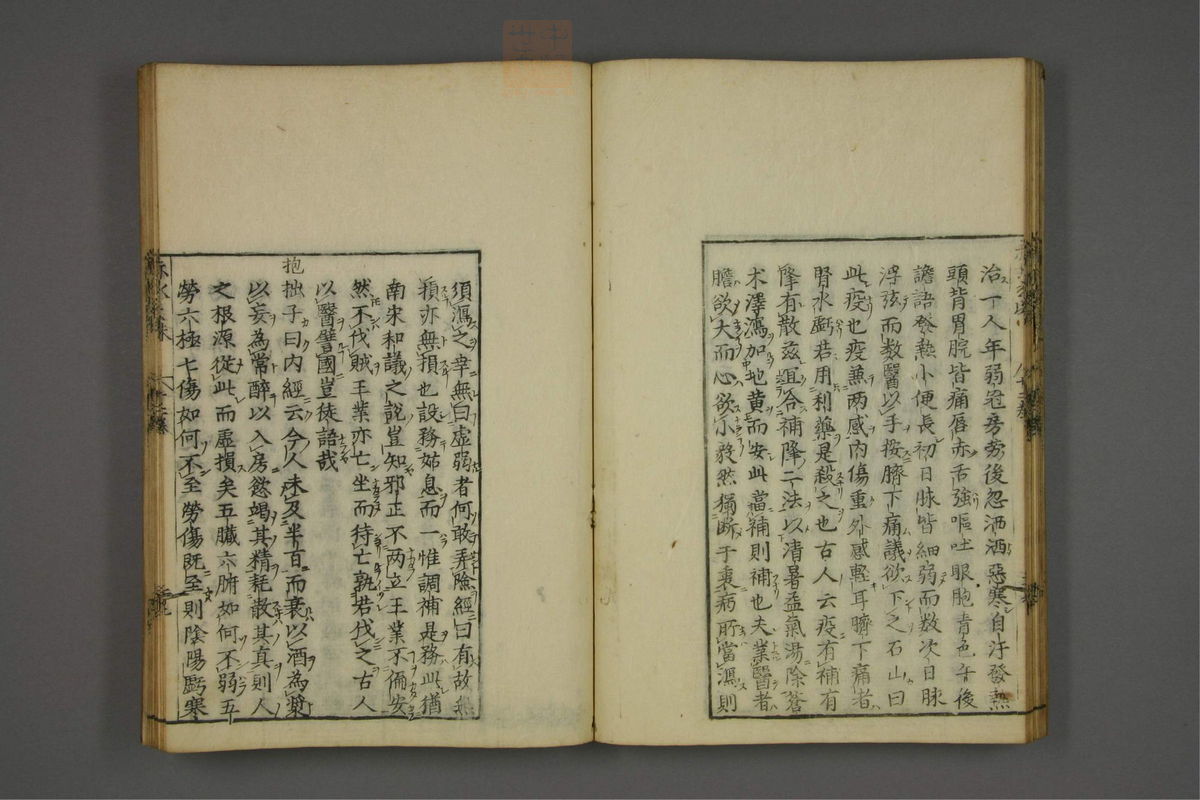 治一人年弱冠房勞後忽洒洒惡寒自汗發熱
頭背胃脘皆痛唇赤舌強嘔吐眼胞青色午後
譫語發熱小便長初日脉皆細弱而数次日脉
浮弦而数醫以手按臍下痛議欲下之石山曰
此疫也疫兼两感内傷重外感輕耳臍下痛者
腎水虧若用利藥是殺之也古人云疫有補有
降有散兹冝合補降二法以清暑益氣湯除蒼
术澤瀉加地黄而安此當補則補也夫業醫者
膽欲大而心欲小毅然獨断于衷病所當瀉則
須瀉之幸無曰虚弱者何敢弄險經曰有故無
損亦無損也設務姑息而一惟調補是務此猶
南宋和議之說豈知邪正不两立王業不偏安
然不伐賊王業亦亡坐而待亡孰若伐之古人
以醫譬國豈徒語哉
抱拙子曰内經云今人未及半百而衰以酒為漿
以妄為常醉以入房慾竭其精耗散其真則人
之根源從此而虚損矣五臟六腑如何不弱五
勞六極七傷如何不至勞傷既至則陰陽虧寒